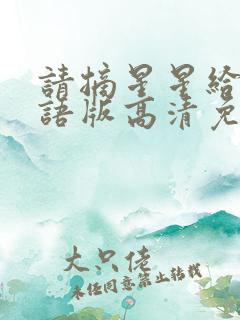 請摘星星給
語版高清免
大只佬
未经同意禁止转载